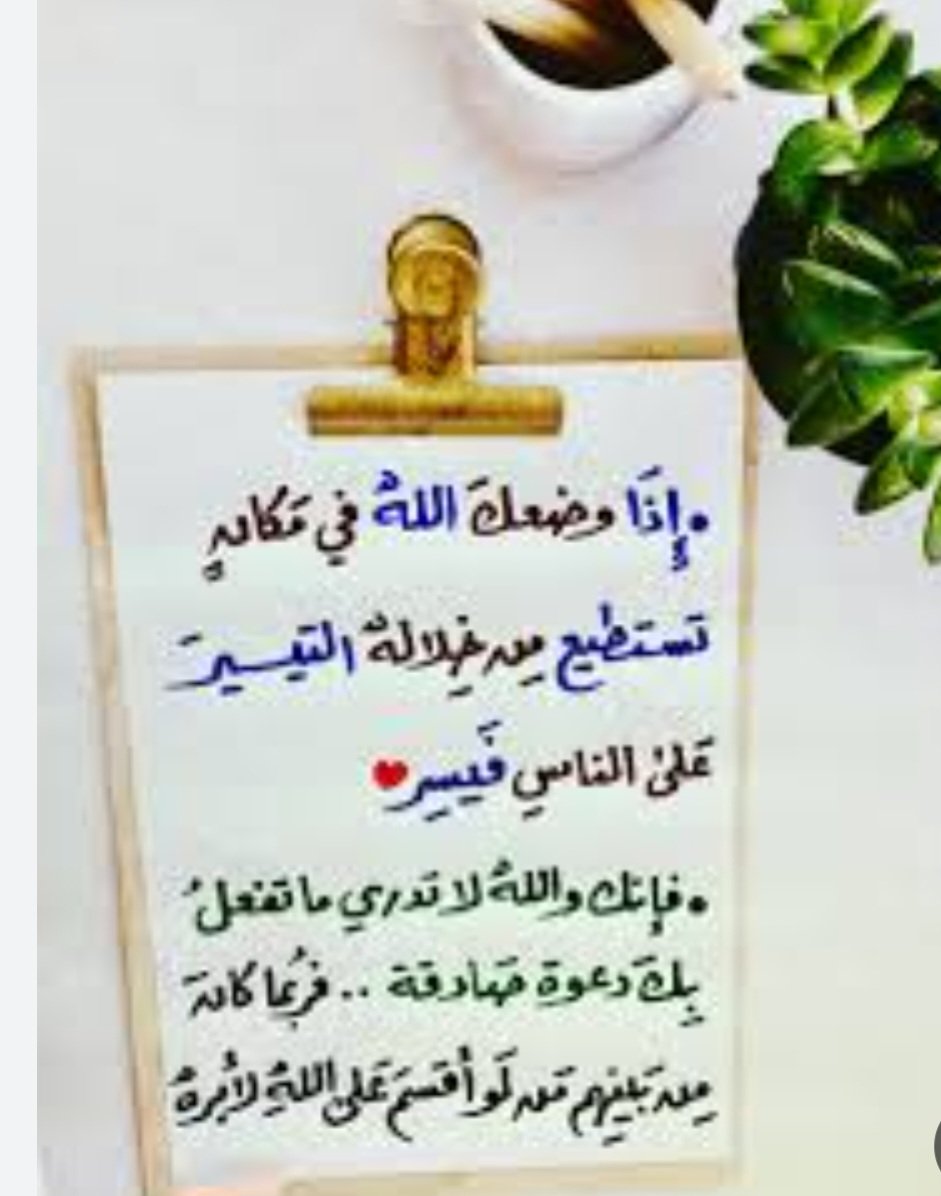 • إِذَا وضعكَ اللهُ في مَكانٍ
تستطيع مِن خِلالهُ التيسيرَ
عَلىٰ الناسِ فَيسِر❤
• فإنك واللهُ لا تدري ما تفعلُ
بِكَ دعوة صَادقة .. فرُبما كانَ
مِن بَينِهم مَن لَو أُقسَمَ عَلىٰ اللهِ لأبرهُ